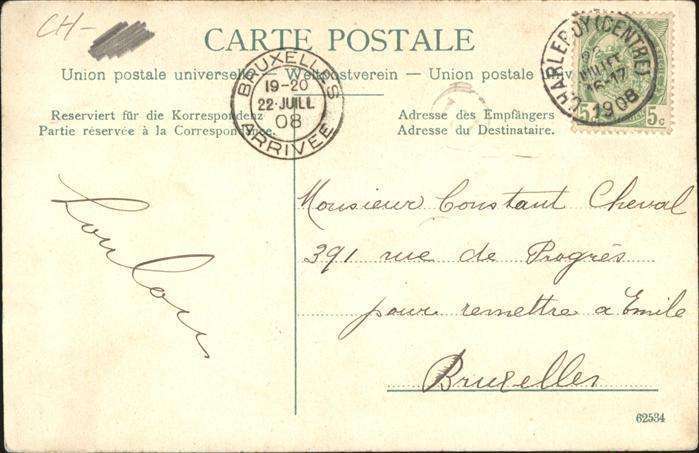 CH-
CARTE POSTALE
Union postale universelle - Weltpostverein - Union postale
Reserviert für die Korrespondenz
Partie réservée à la Correspondance.
Adresse des Empfängers
Adresse du Destinataire.
BRUXELLES
19-20
22·JUILL
08
ARRIVÉE
CHARLEROY (CENTRE)
22
JUILLET
16-17
1908
5 5c
Loulou
Monsieur Constant Cheval
391 rue de Progrès
pour remettre a Emile
Bruxelles
62534